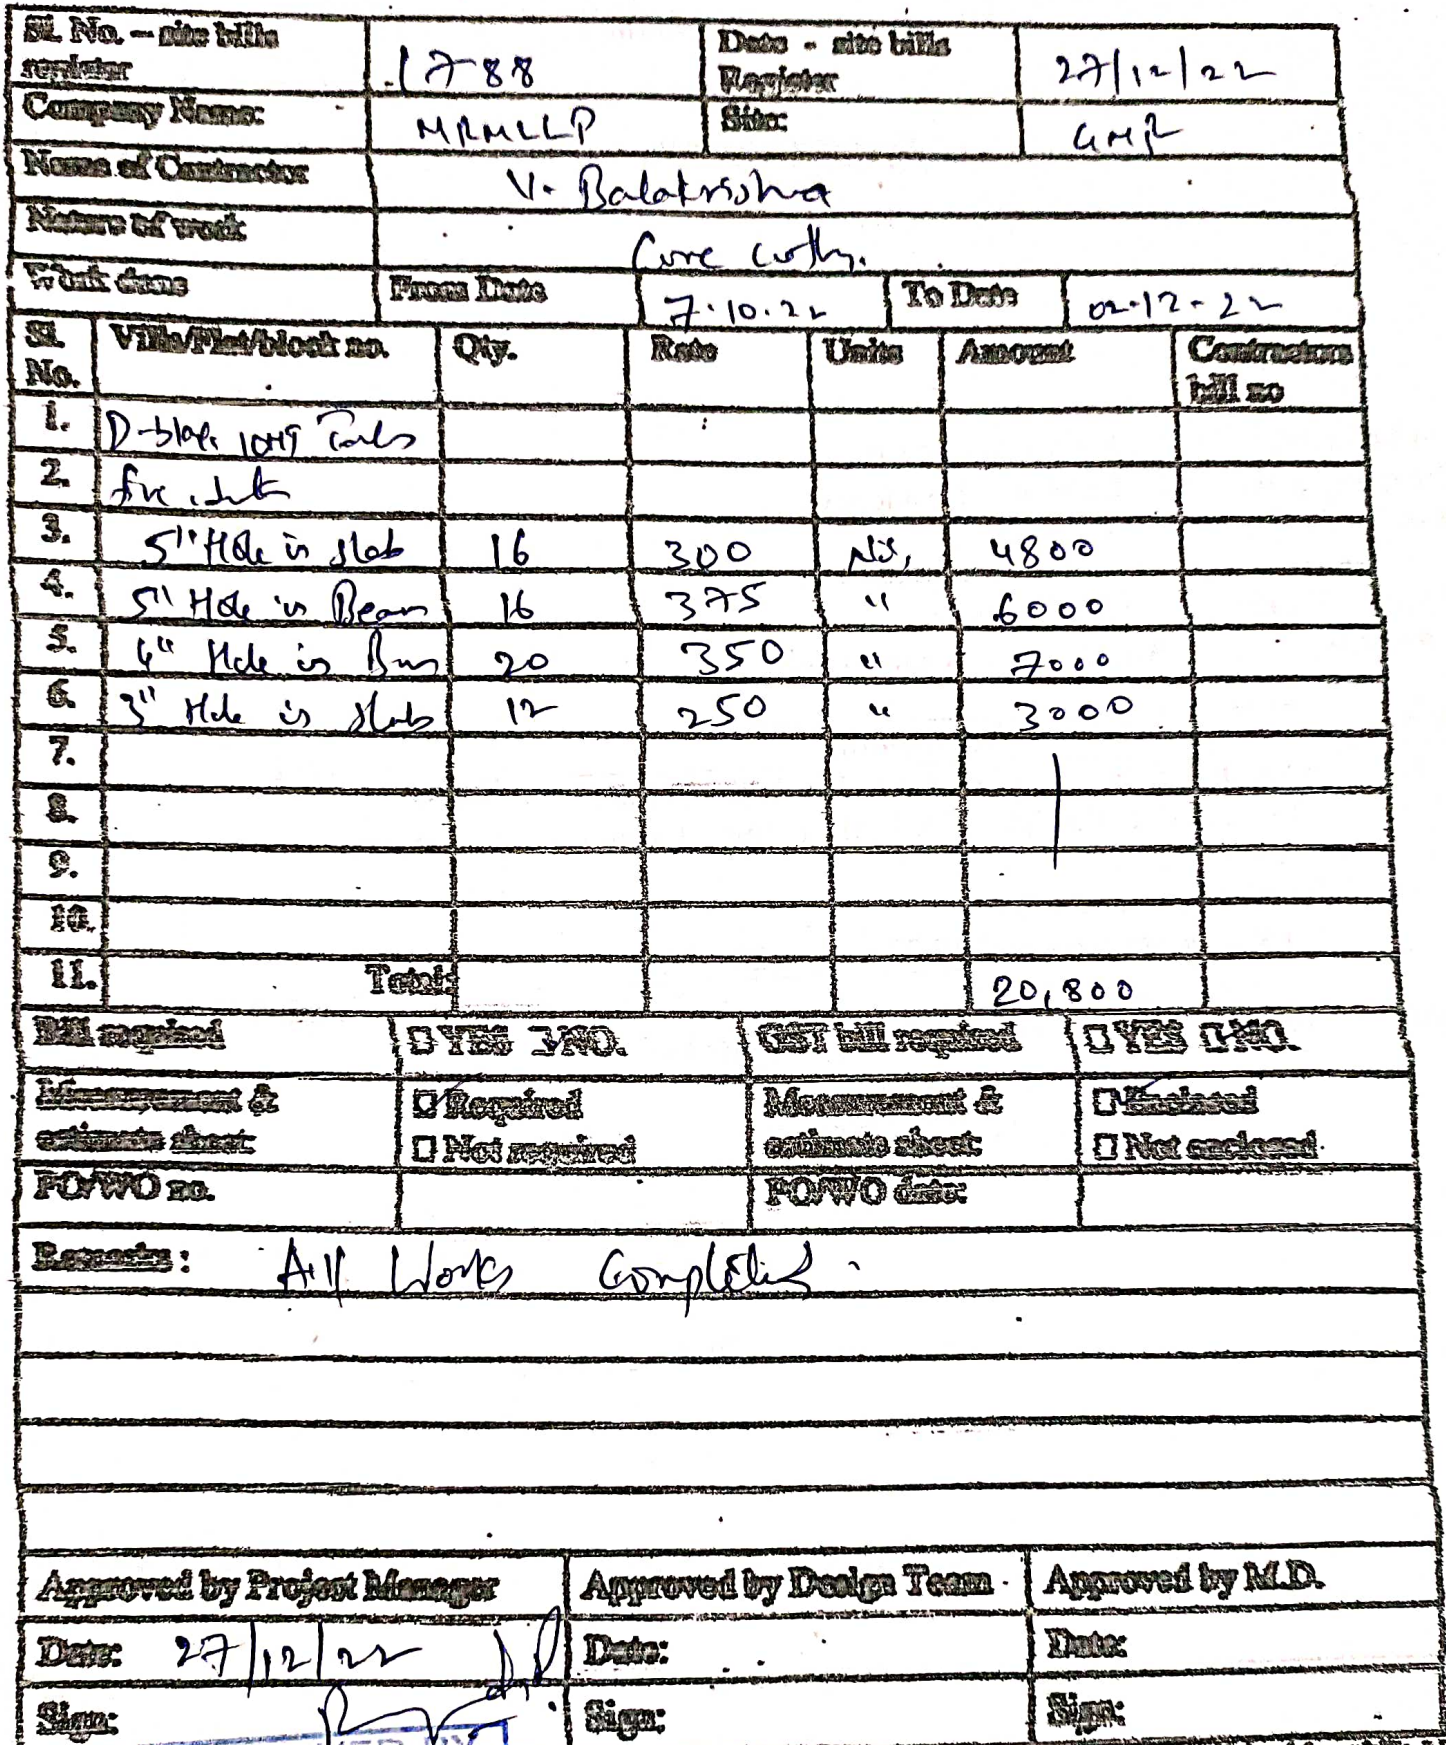 Sl. No. – site bills register 1788 Date - site bills Register 27/12/22
Company Name: MRMLLP Site: GMR
Name of Contractor V. Balakrishna
Nature of work Core cutting.
Work done From Date 7.10.22 To Date 02-12-22
Sl. No. Villa/Flat/block no. Qty. Rate Units Amount Contractors bill no
1. D-block
2.
3. 5" Hole in slab 16 300 Nos, 4800
4. 5" Hole in Beam 16 375 " 6000
5. 4" Hole in 20 350 " 7000
6. 3" Hole in slab 12 250 " 3000
7.
8.
9.
10.
11. Total: 20,800
Bill required YES NO. GST bill required YES NO.
Measurement & estimate sheet: Required Measurement & estimate sheet: Enclosed
Not required Not enclosed
PO/WO no. PO/WO date:
Remarks: All Works Completed
Approved by Project Manager Approved by Design Team Approved by M.D.
Date: 27/12/22 Date: Date:
Sign: Sign: Sign: